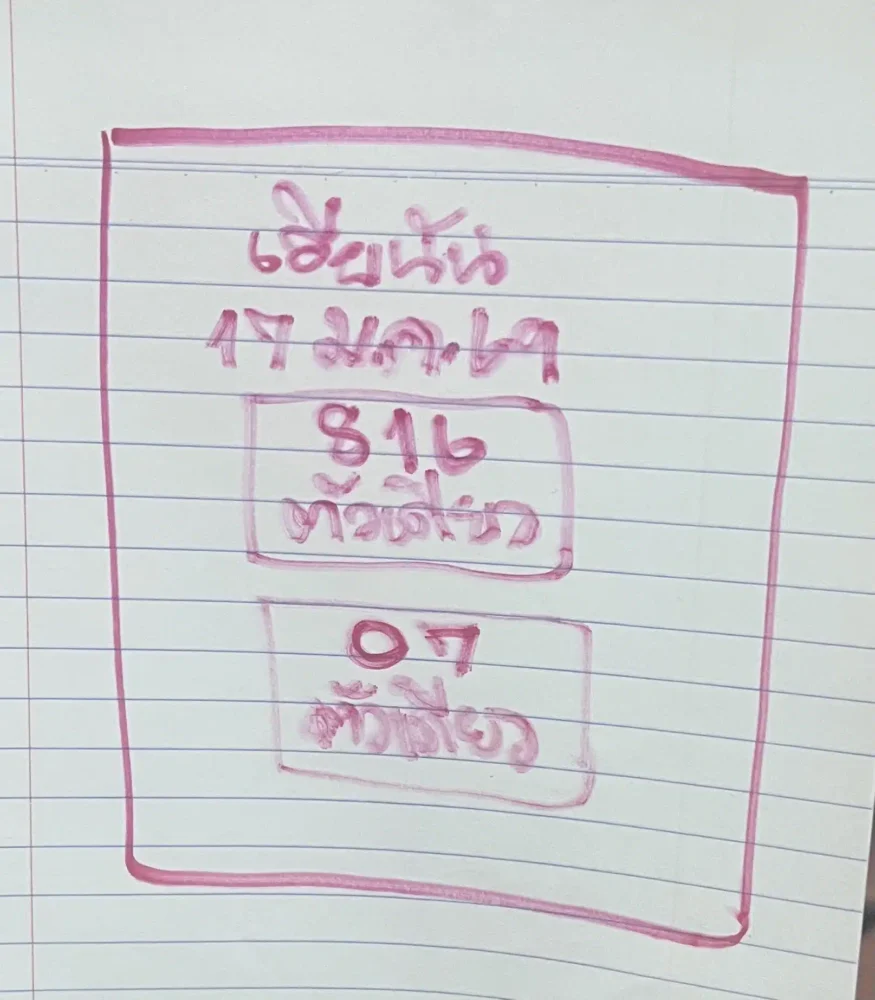 เฮียนัน
17 ม.ค.69
816
ตัวเดียว
07
ตัวเดียว